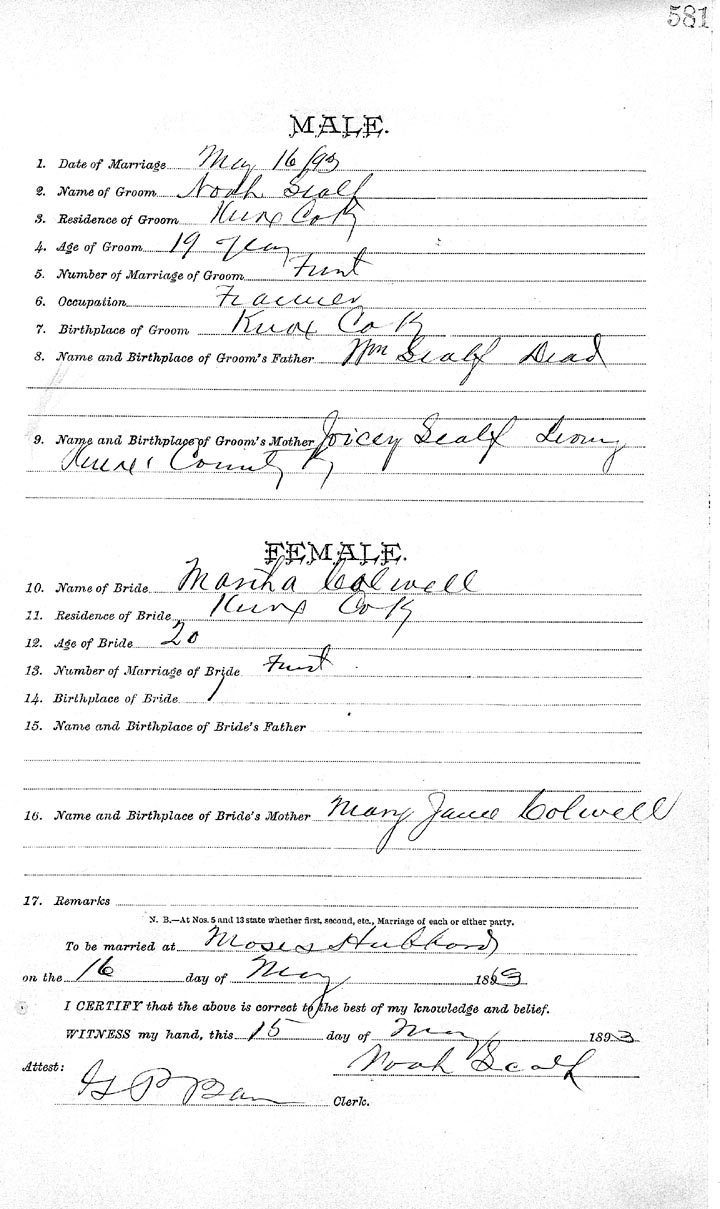 581
MALE.
1. Date of Marriage May 16/93
2. Name of Groom Noah Scalf
3. Residence of Groom Knox Co Ky
4. Age of Groom 19 years
5. Number of Marriage of Groom First
6. Occupation Farmer
7. Birthplace of Groom Knox Co K
8. Name and Birthplace of Groom's Father Wm Scalf Dead
9. Name and Birthplace of Groom's Mother Joicey Scalf Living
Knox County Ky
FEMALE.
10. Name of Bride Martha Colwell
11. Residence of Bride Knox Co Ky
12. Age of Bride 20
13. Number of Marriage of Bride First
14. Birthplace of Bride
15. Name and Birthplace of Bride's Father
16. Name and Birthplace of Bride's Mother Mary Jane Colwell
17. Remarks
N. B.—At Nos. 5 and 13 state whether first, second, etc., Marriage of each or either party.
To be married at Moses Hubbard
on the 16 day of May 1893
I CERTIFY that the above is correct to the best of my knowledge and belief.
WITNESS my hand, this 15 day of May 1893
Noah Scalf
Attest:
Clerk.